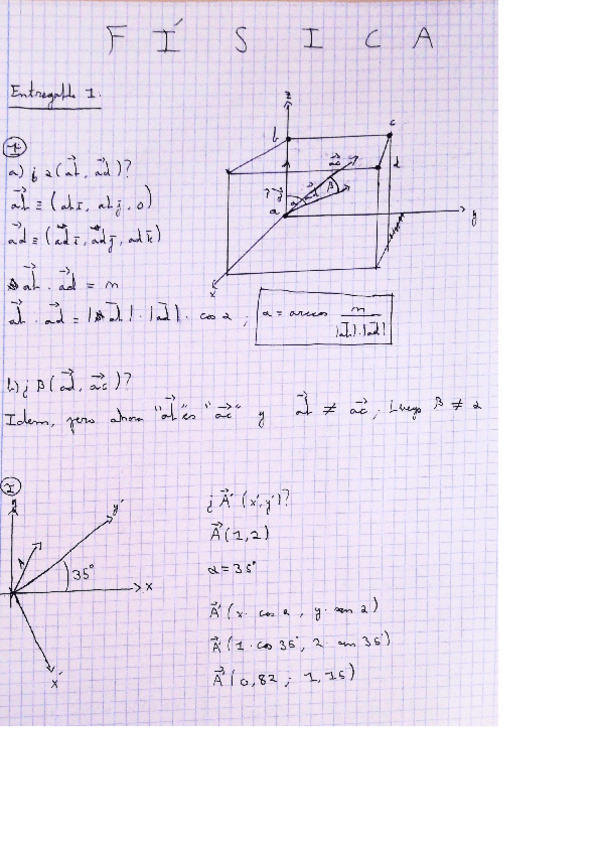 FÍSICA
Entregable 1.
z
b
c
d
a
y
x
ac
α
β
1
a) ¿ α (ab, ad)?
ab ≡ (ab i, ab j, 0)
ad ≡ (ad i, ad j, ad k)
ab · ad = m
ab · ad = |ab| · |ad| · cos α ; α = arcos m / |ab|·|ad|
b) ¿ β (ad, ac)?
Idem, pero ahora "ab" es "ac" y ab ≠ ac, Luego β ≠ α
2
y
y'
A
35°
x
x'
¿ A' (x', y')?
A (1, 2)
α = 35°
A' (x · cos α, y · sen α)
A' (1 · cos 35°, 2 · sen 35°)
A' (0,82 ; 1,15)